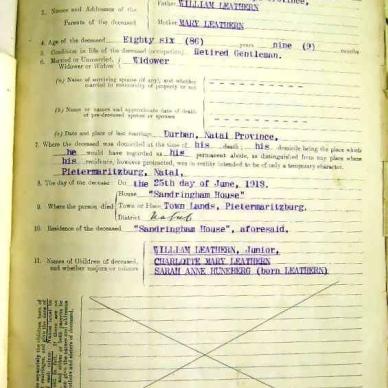 Province,
3. Names and Addresses of the Parents of the deceased
Father WILLIAM LEATHERN
Mother MARY LEATHERN
4. Age of the deceased Eighty six (86) years nine (9) months
5. Condition in life of the deceased (occupation) Retired Gentleman.
6. Married or Unmarried, Widower or Widow Widower
(a) Name of surviving spouse (if any), and whether married in community of property or not
(b) Name or names and approximate date of death of pre-deceased spouse or spouses
(c) Date and place of last marriage Durban, Natal Province,
7. Where the deceased was domiciled at the time of his death; his domicile being the place which
he would have regarded as his permanent abode, as distinguished from any place where
his residence, however protracted, was in reality intended to be only of a temporary character.
Pietermaritzburg, Natal,
8. The day of the decease: On the 25th day of June, 1918.
9. Where the person died
House "Sandringham House"
Town or Place Town Lands, Pietermaritzburg.
District Natal
10. Residence of the deceased "Sandringham House", aforesaid,
11. Names of Children of deceased, and whether majors or minors
WILLIAM LEATHERN, Junior,
CHARLOTTE MARY LEATHERN
SARAH ANNE HUNEBERG (born LEATHERN)